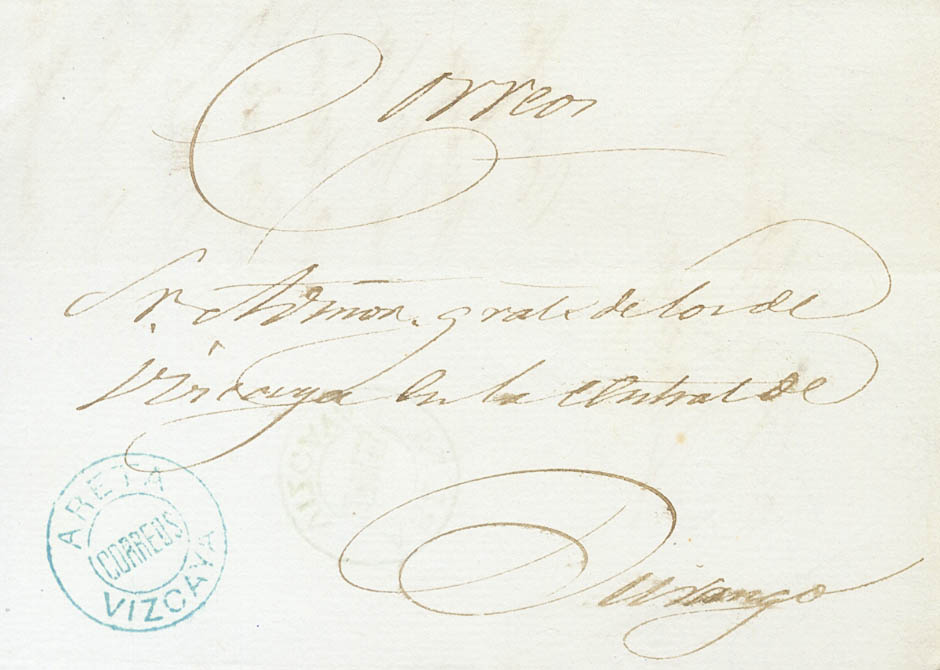 Correos
Sr. Admor. gral. de los de
Vizcaya en la Central de
Durango
ARETA
CORREOS
VIZCAYA